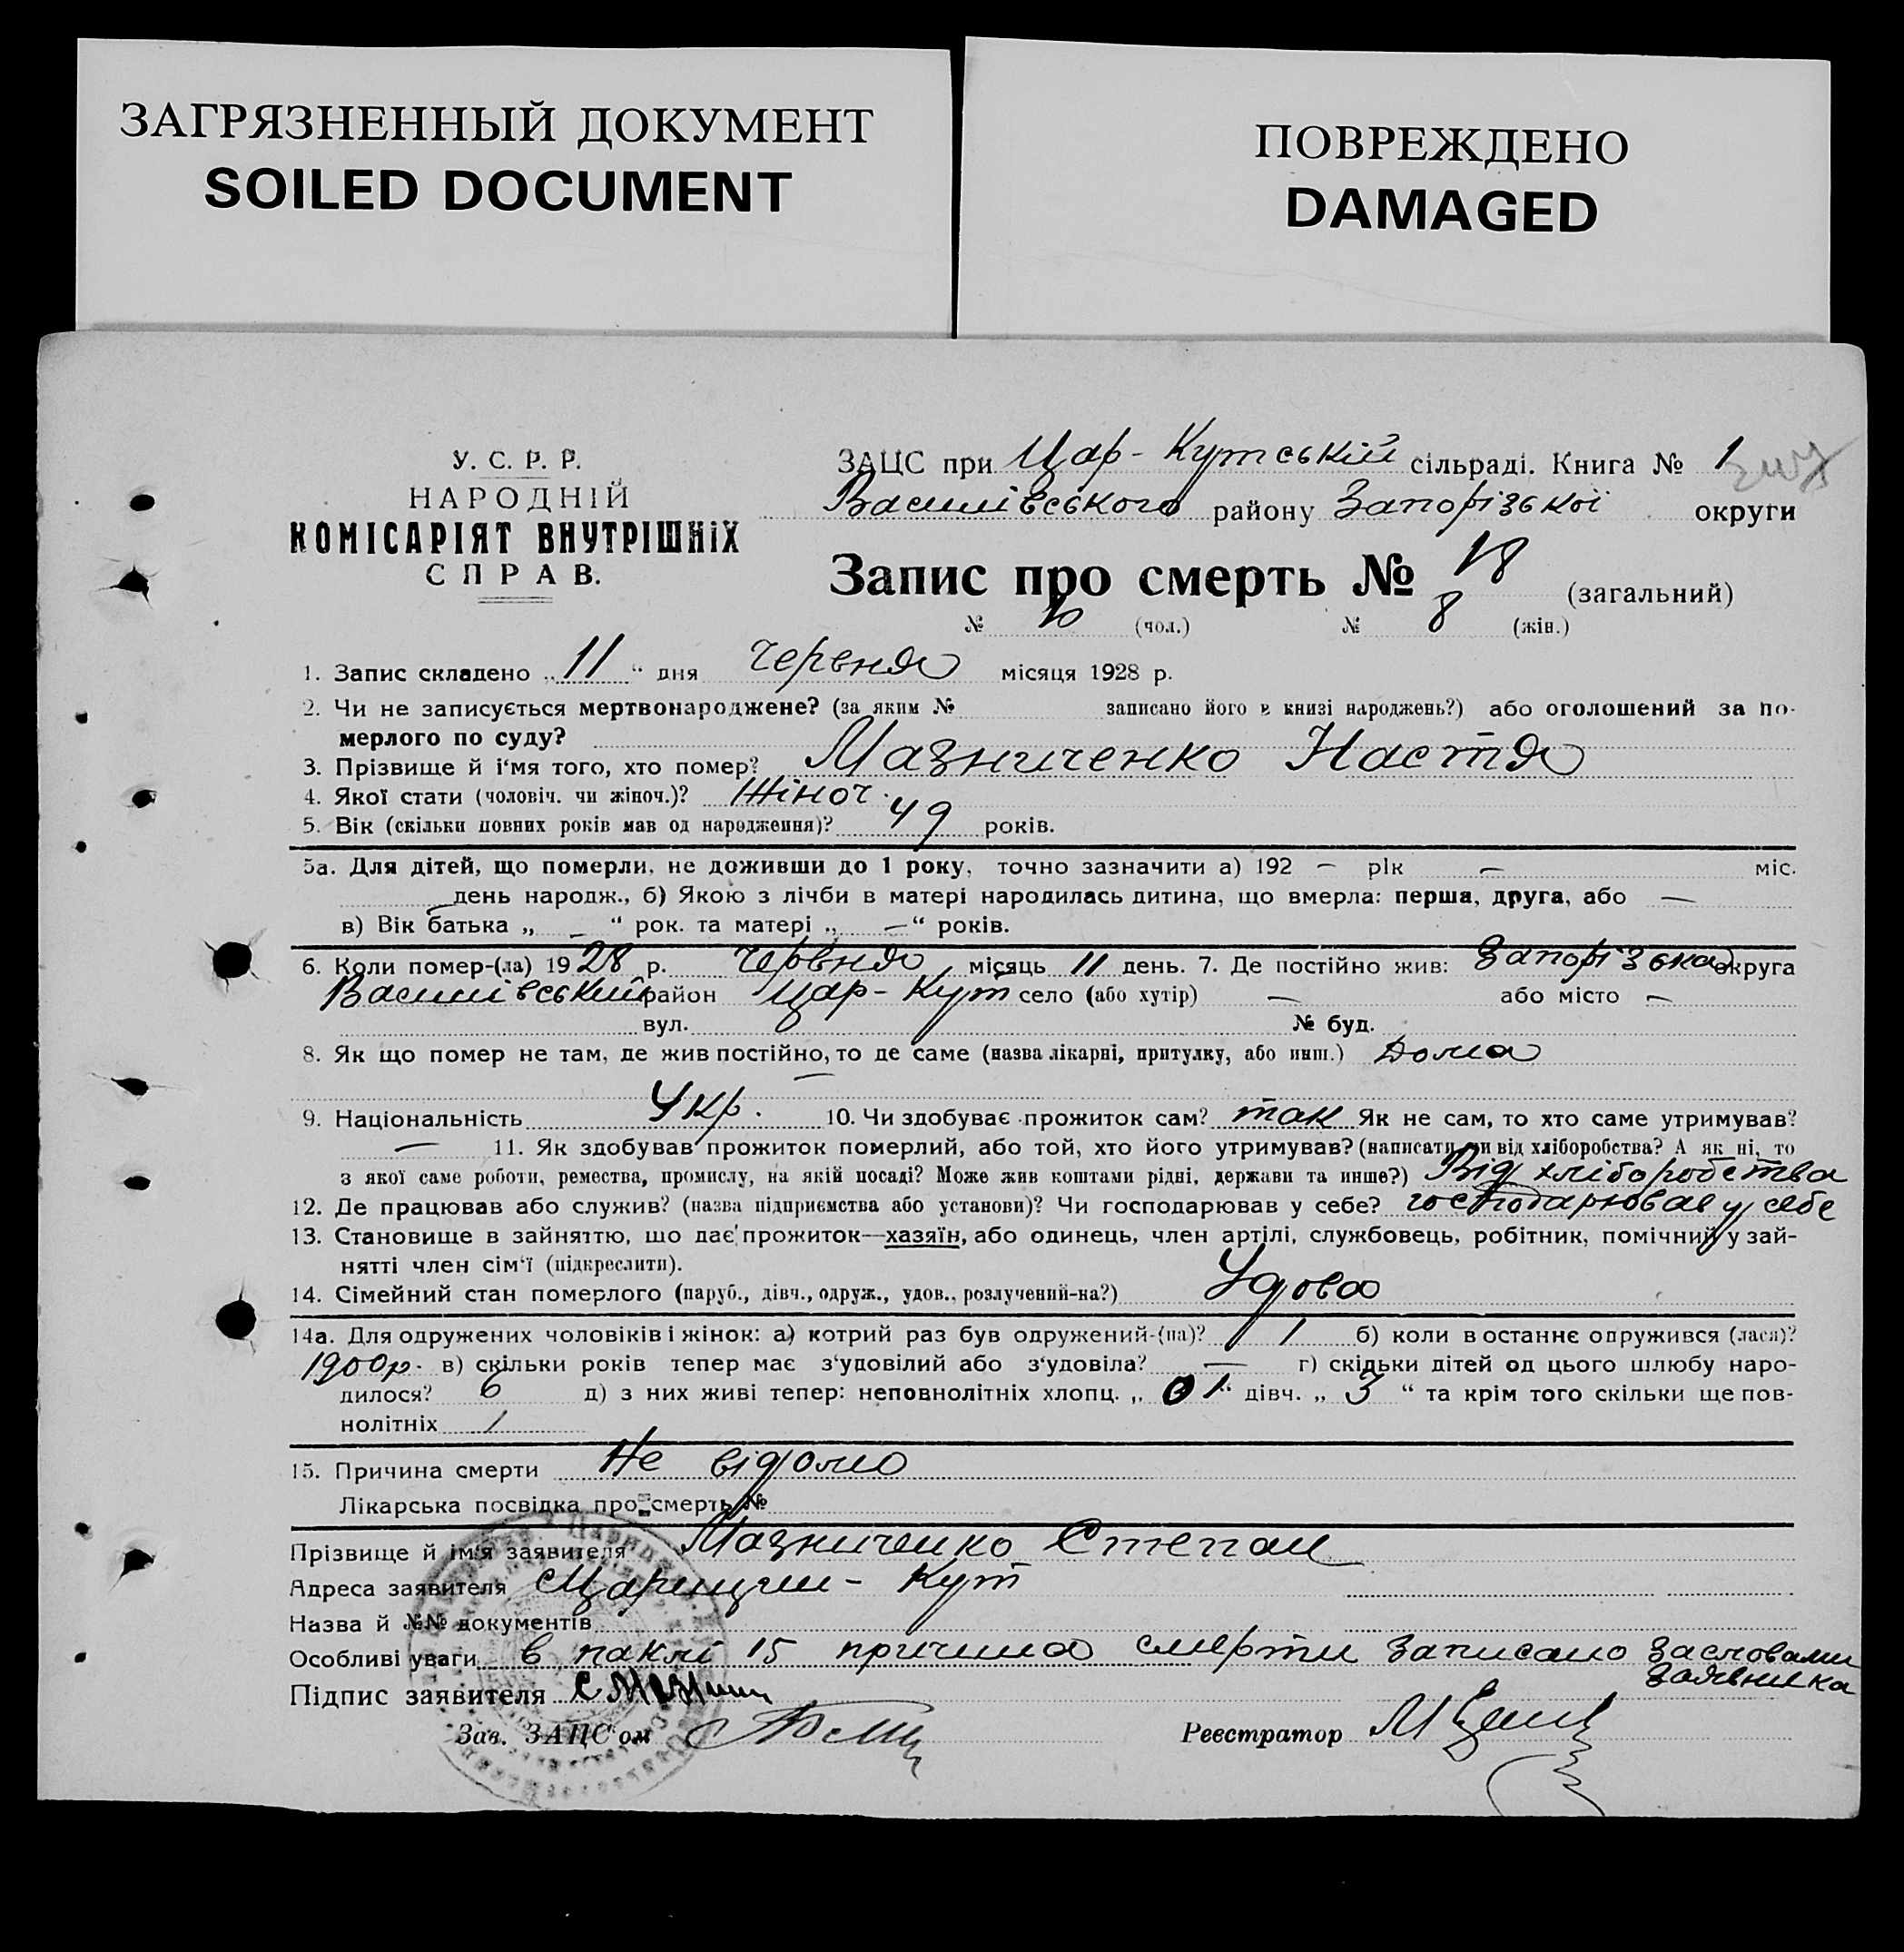 ЗАГРЯЗНЕННЫЙ ДОКУМЕНТ
SOILED DOCUMENT
ПОВРЕЖДЕНО
DAMAGED
У. С. Р. Р.
НАРОДНІЙ
КОМІСАРІЯТ ВНУТРІШНІХ
СПРАВ.
ЗАЦС при Цар-Кутській сільраді. Книга № 1
Василівського району Запорізької округи
Запис про смерть № 18 (загальний)
№ 10 (чол.) № 8 (жін.)
1. Запис складено „11“ дня червня місяця 1928 р.
2. Чи не записується мертвонароджене? (за яким № записано його в книзі народжень?) або оголошений за по-
мерлого по суду?
3. Прізвище й і'мя того, хто помер? Мазниченко Настя
4. Якої стати (чоловіч. чи жіноч.)? Жіноч.
5. Вік (скільки повних років мав од народження)? 49 років.
5а. Для дітей, що померли, не доживши до 1 року, точно зазначити а) 192 — рік — міс.
— день народж., б) Якою з лічби в матері народилась дитина, що вмерла: перша, друга, або —
в) Вік батька „ — “ рок. та матері „ — “ років.
6. Коли помер-(ла) 1928 р. червня місяць 11 день. 7. Де постійно жив: Запорізька округа
Василівський район Цар-Кут село (або хутір) — або місто —
вул. № буд.
8. Як що помер не там, де жив постійно, то де саме (назва лікарні, притулку, або инш.) Дома
—
9. Національність Укр. 10. Чи здобуває прожиток сам? так Як не сам, то хто саме утримував?
— 11. Як здобував прожиток померлий, або той, хто його утримував? (написати чи від хліборобства? А як ні, то
з якої саме роботи, ремества, промислу, на якій посаді? Може жив коштами рідні, держави та инше?) Від хліборобства
12. Де працював або служив? (назва підприємства або установи)? Чи господарював у себе? господарював у себе
13. Становище в зайняттю, що дає прожиток—хазяїн, або одинець, член артілі, службовець, робітник, помічний у зай-
нятті член сім'ї (підкреслити).
14. Сімейний стан померлого (паруб., дівч., одруж., удов., розлучений-на?) Удова
14а. Для одружених чоловіків і жінок: а) котрий раз був одружений-(на)? 1 б) коли востаннє одружився (лася)?
1900р. в) скільки років тепер має з'удовілий або з'удовіла? — г) скільки дітей од цього шлюбу наро-
дилося? 6 д) з них живі тепер: неповнолітніх хлопц. „ 1 “ дівч. „ 3 “ та крім того скільки ще пов-
нолітніх 1
15. Причина смерти Не відомо
Лікарська посвідка про смерть №
Прізвище й ім'я заявителя Мазниченко Степан
Адреса заявителя с Царицин-Кут
Назва й №№ документів
Особливі уваги в 15 причина смерти записано за словами
заявника
Підпис заявителя
Зав. ЗАЦС'ом Реєстратор